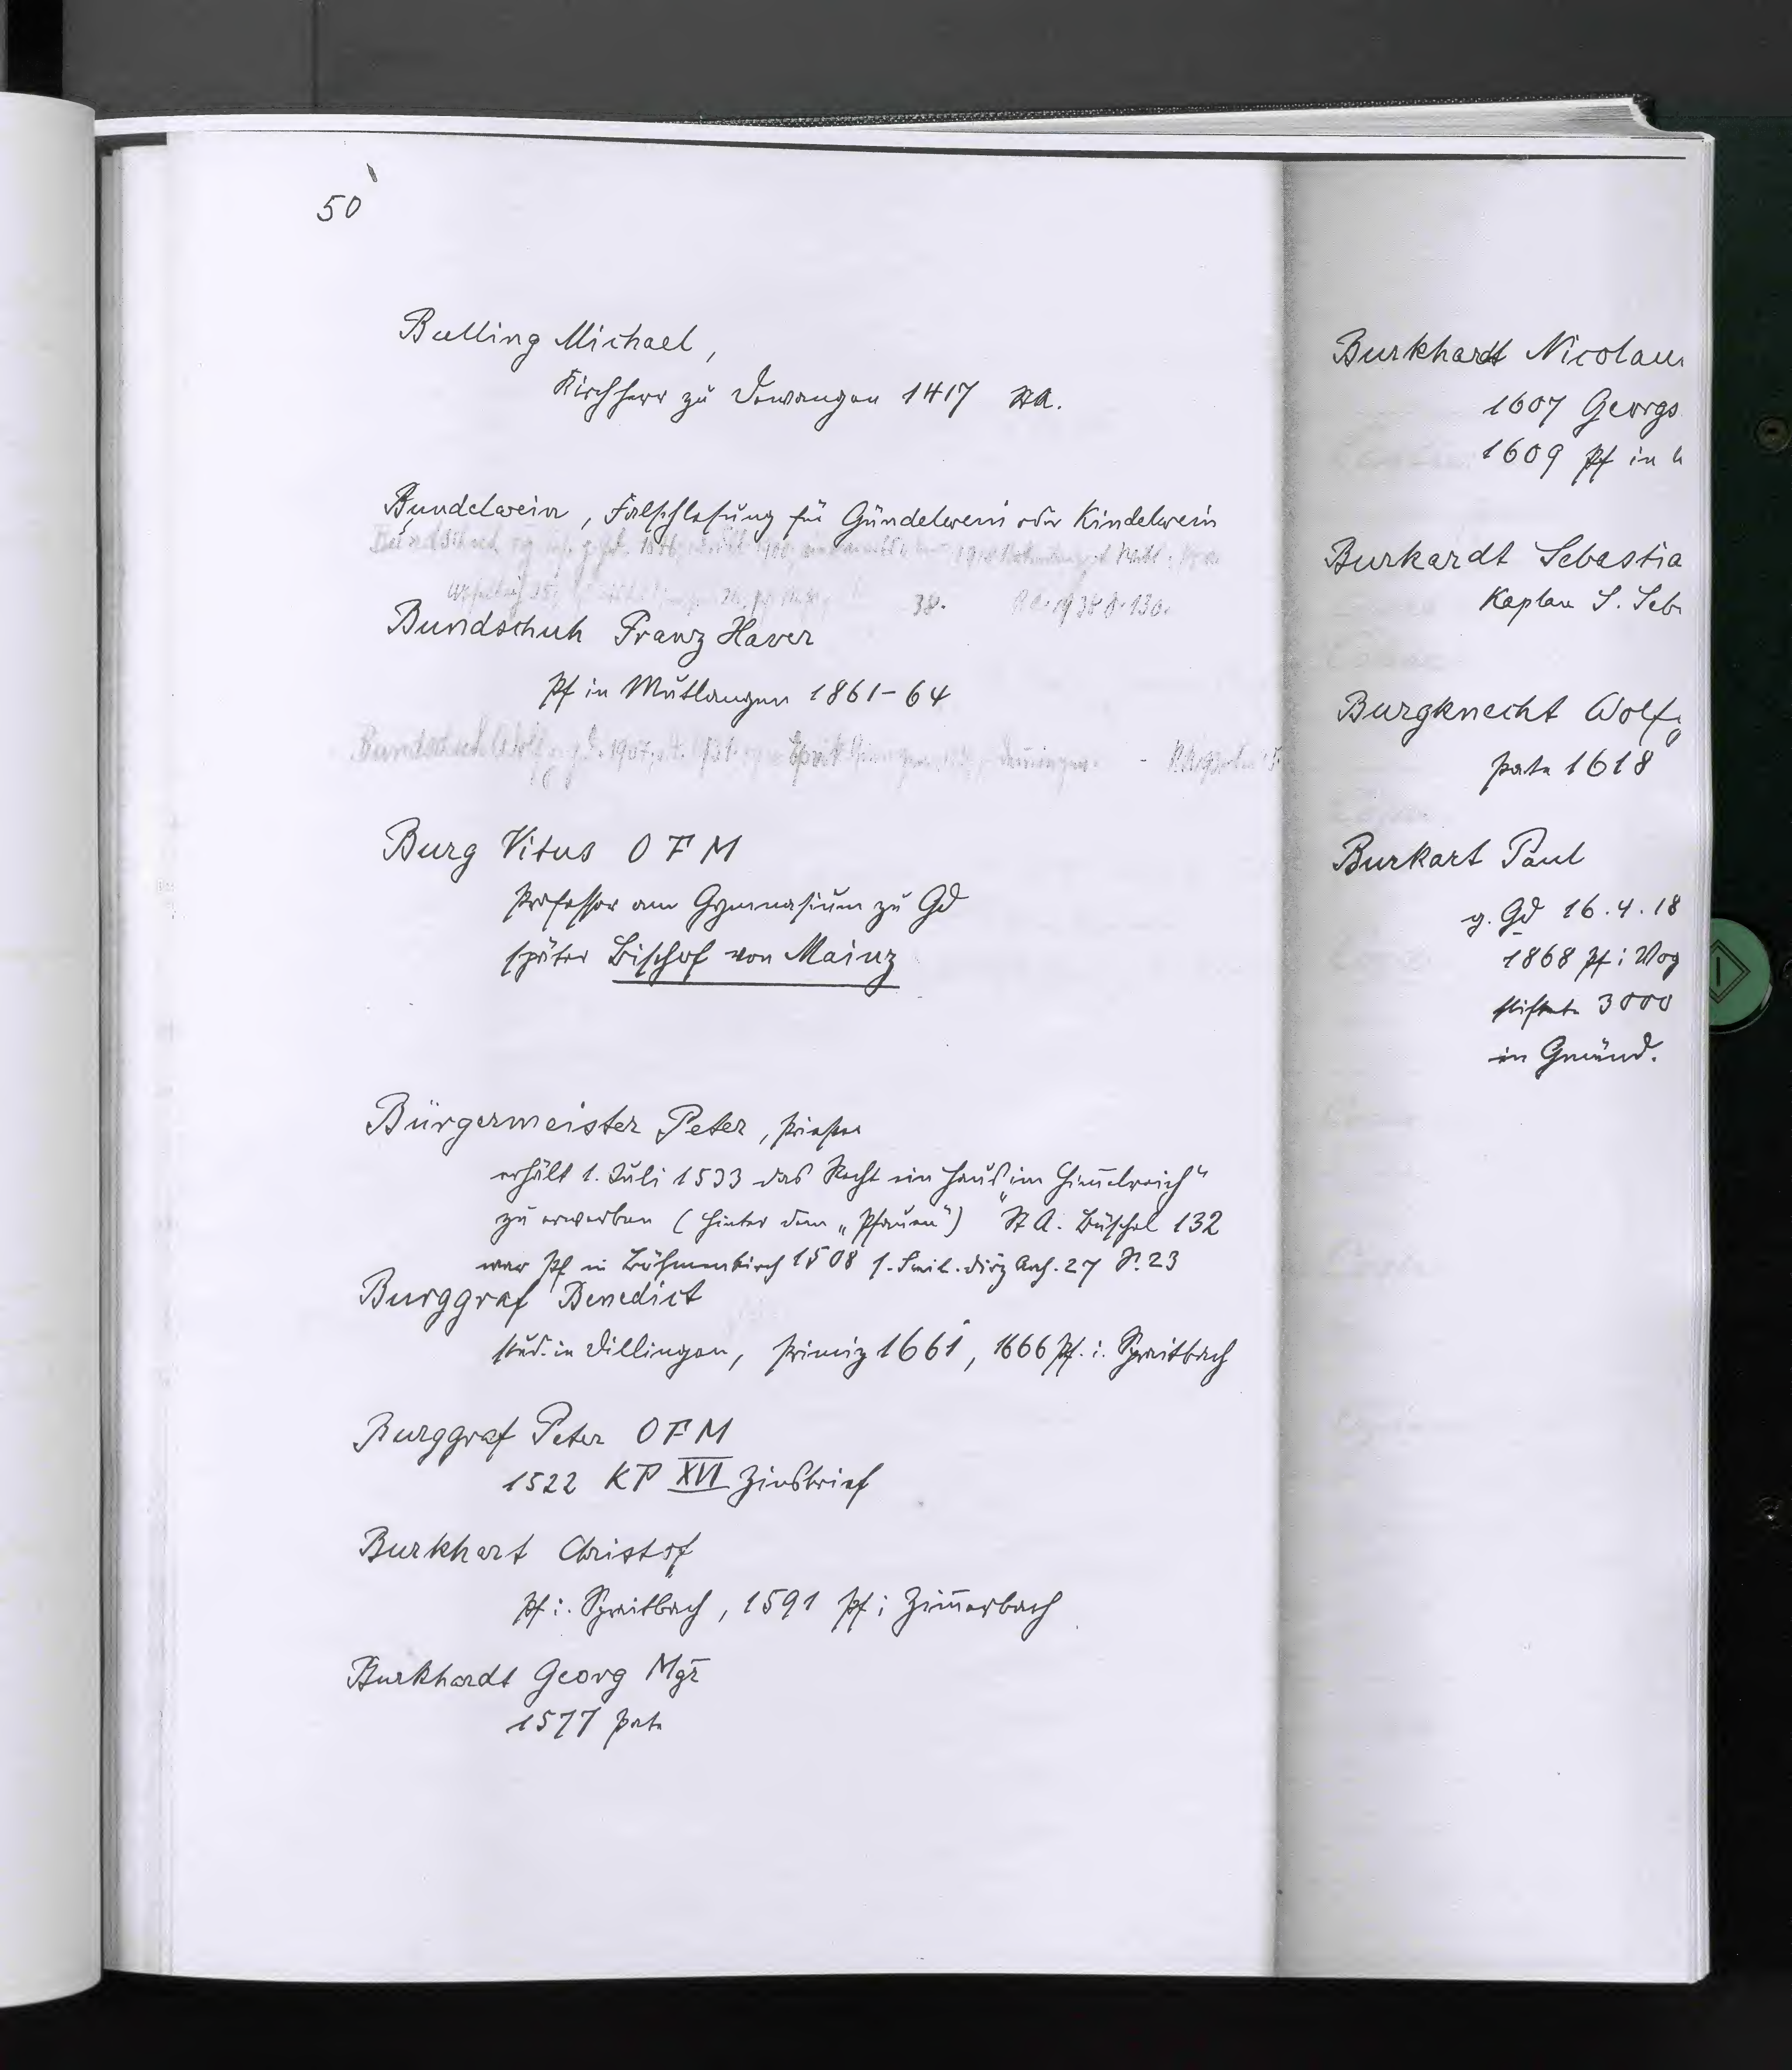 50
Bulling Michael,
Kirchherr zu Dewangen 1417 StA.
Bundelwein, Falschlesung für Gündelwein oder Kindelwein
Bundschuh
38.
Bundschuh Franz Xaver
Pf in Mutlangen 1861-64
Bundschuh
Burg Vitus OFM
Professor am Gymnasium zu Gd
später Bischof von Mainz
Bürgermeister Peter, Priester
erhält 1. Juli 1533 das Recht ein Haus „im Him̅elreich"
zu erwerben (hinter dem „Pfauen") StA. Büschel 132
war Pf in Böhmenkirch 1508 27 S. 23
Burggraf Benedict
stud. in Dillingen, Primiz 1661, 1666 Pf. i. Spraitbach
Burggraf Peter OFM
1522 KP XVI Zinsbrief
Burkhart Christof
Pf i. Spraitbach, 1591 Pf i Zim̅erbach
Burkhardt Georg Mgr
1577 pate
Burkhardt Nicolau
1607 Georgs
1609 Pf in
Burkardt Sebastia
Kaplan S. Seb
Burgknecht Wolf
pate 1618
Burkart Paul
g. Gd 16.4.18
1868 Pf i Wog
stiftete 3000
in Gmünd.